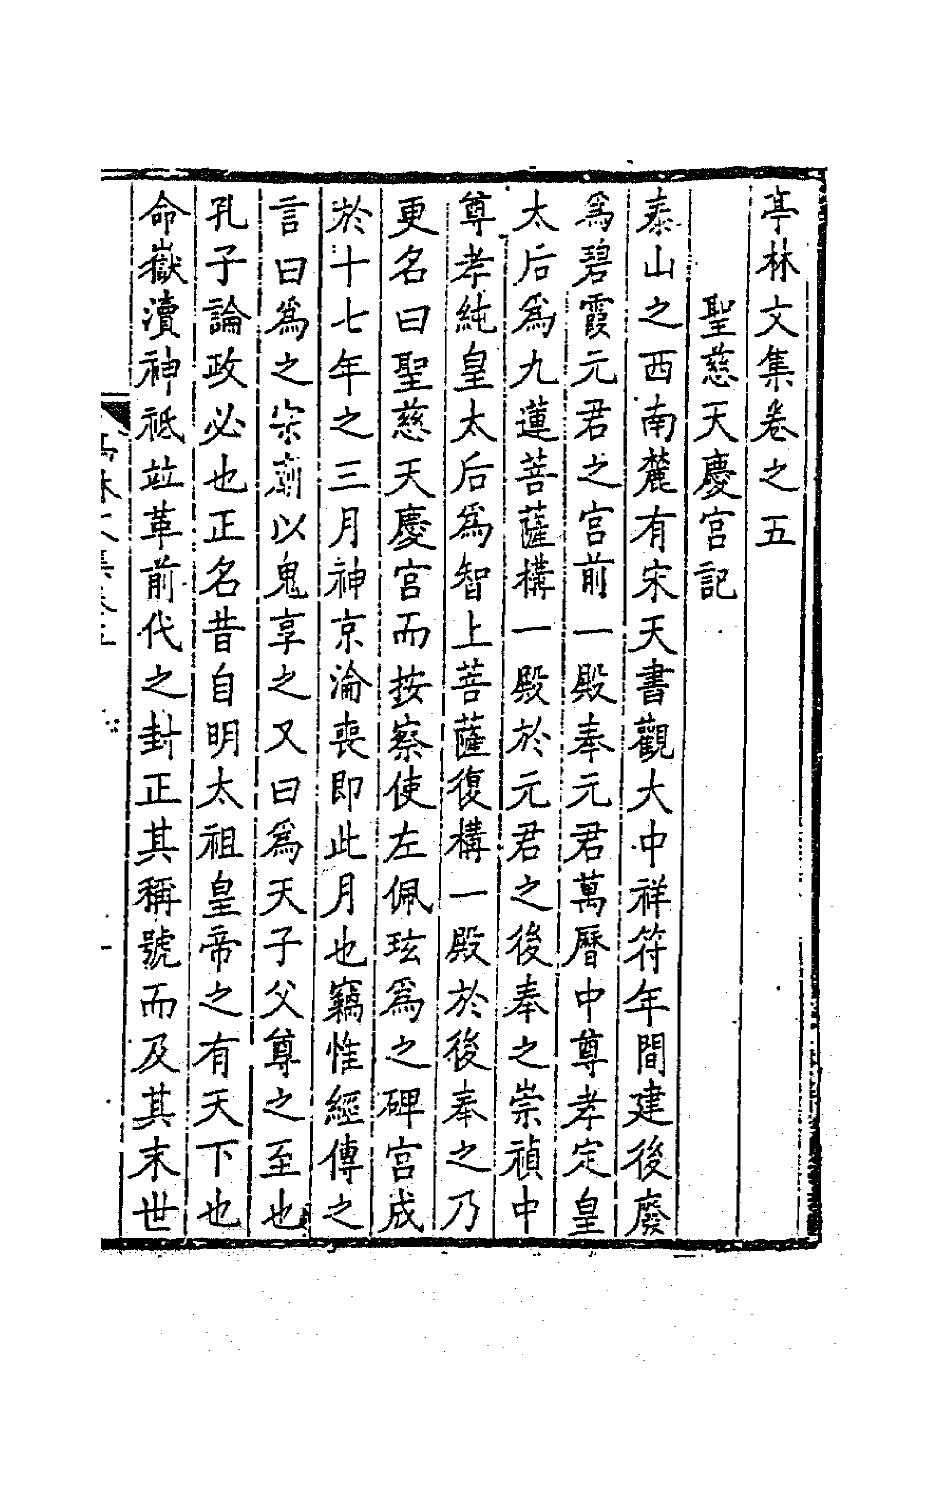 亭林文集卷之五
聖慈天慶宮記
泰山之西南麓有宋天書觀大中祥符年間建後廢
爲碧霞元君之宮前一殿奉元君萬曆中尊孝定皇
太后爲九蓮菩薩構一殿於元君之後奉之崇禎中
尊孝純皇太后爲智上菩薩復構一殿於後奉之乃
更名曰聖慈天慶宮而按察使左佩玹爲之碑宮成
於十七年之三月神京淪喪即此月也竊惟經傳之
言曰爲之宗廟以鬼享之又曰爲天子父尊之至也
孔子論政必也正名昔自明太祖皇帝之有天下也
命嶽瀆神祗竝革前代之封正其稱號而及其末世